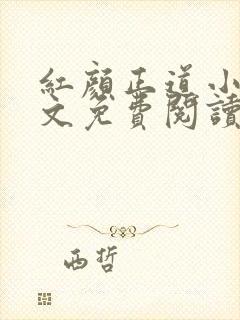 紅顏正道小
文免費閱讀
西哲